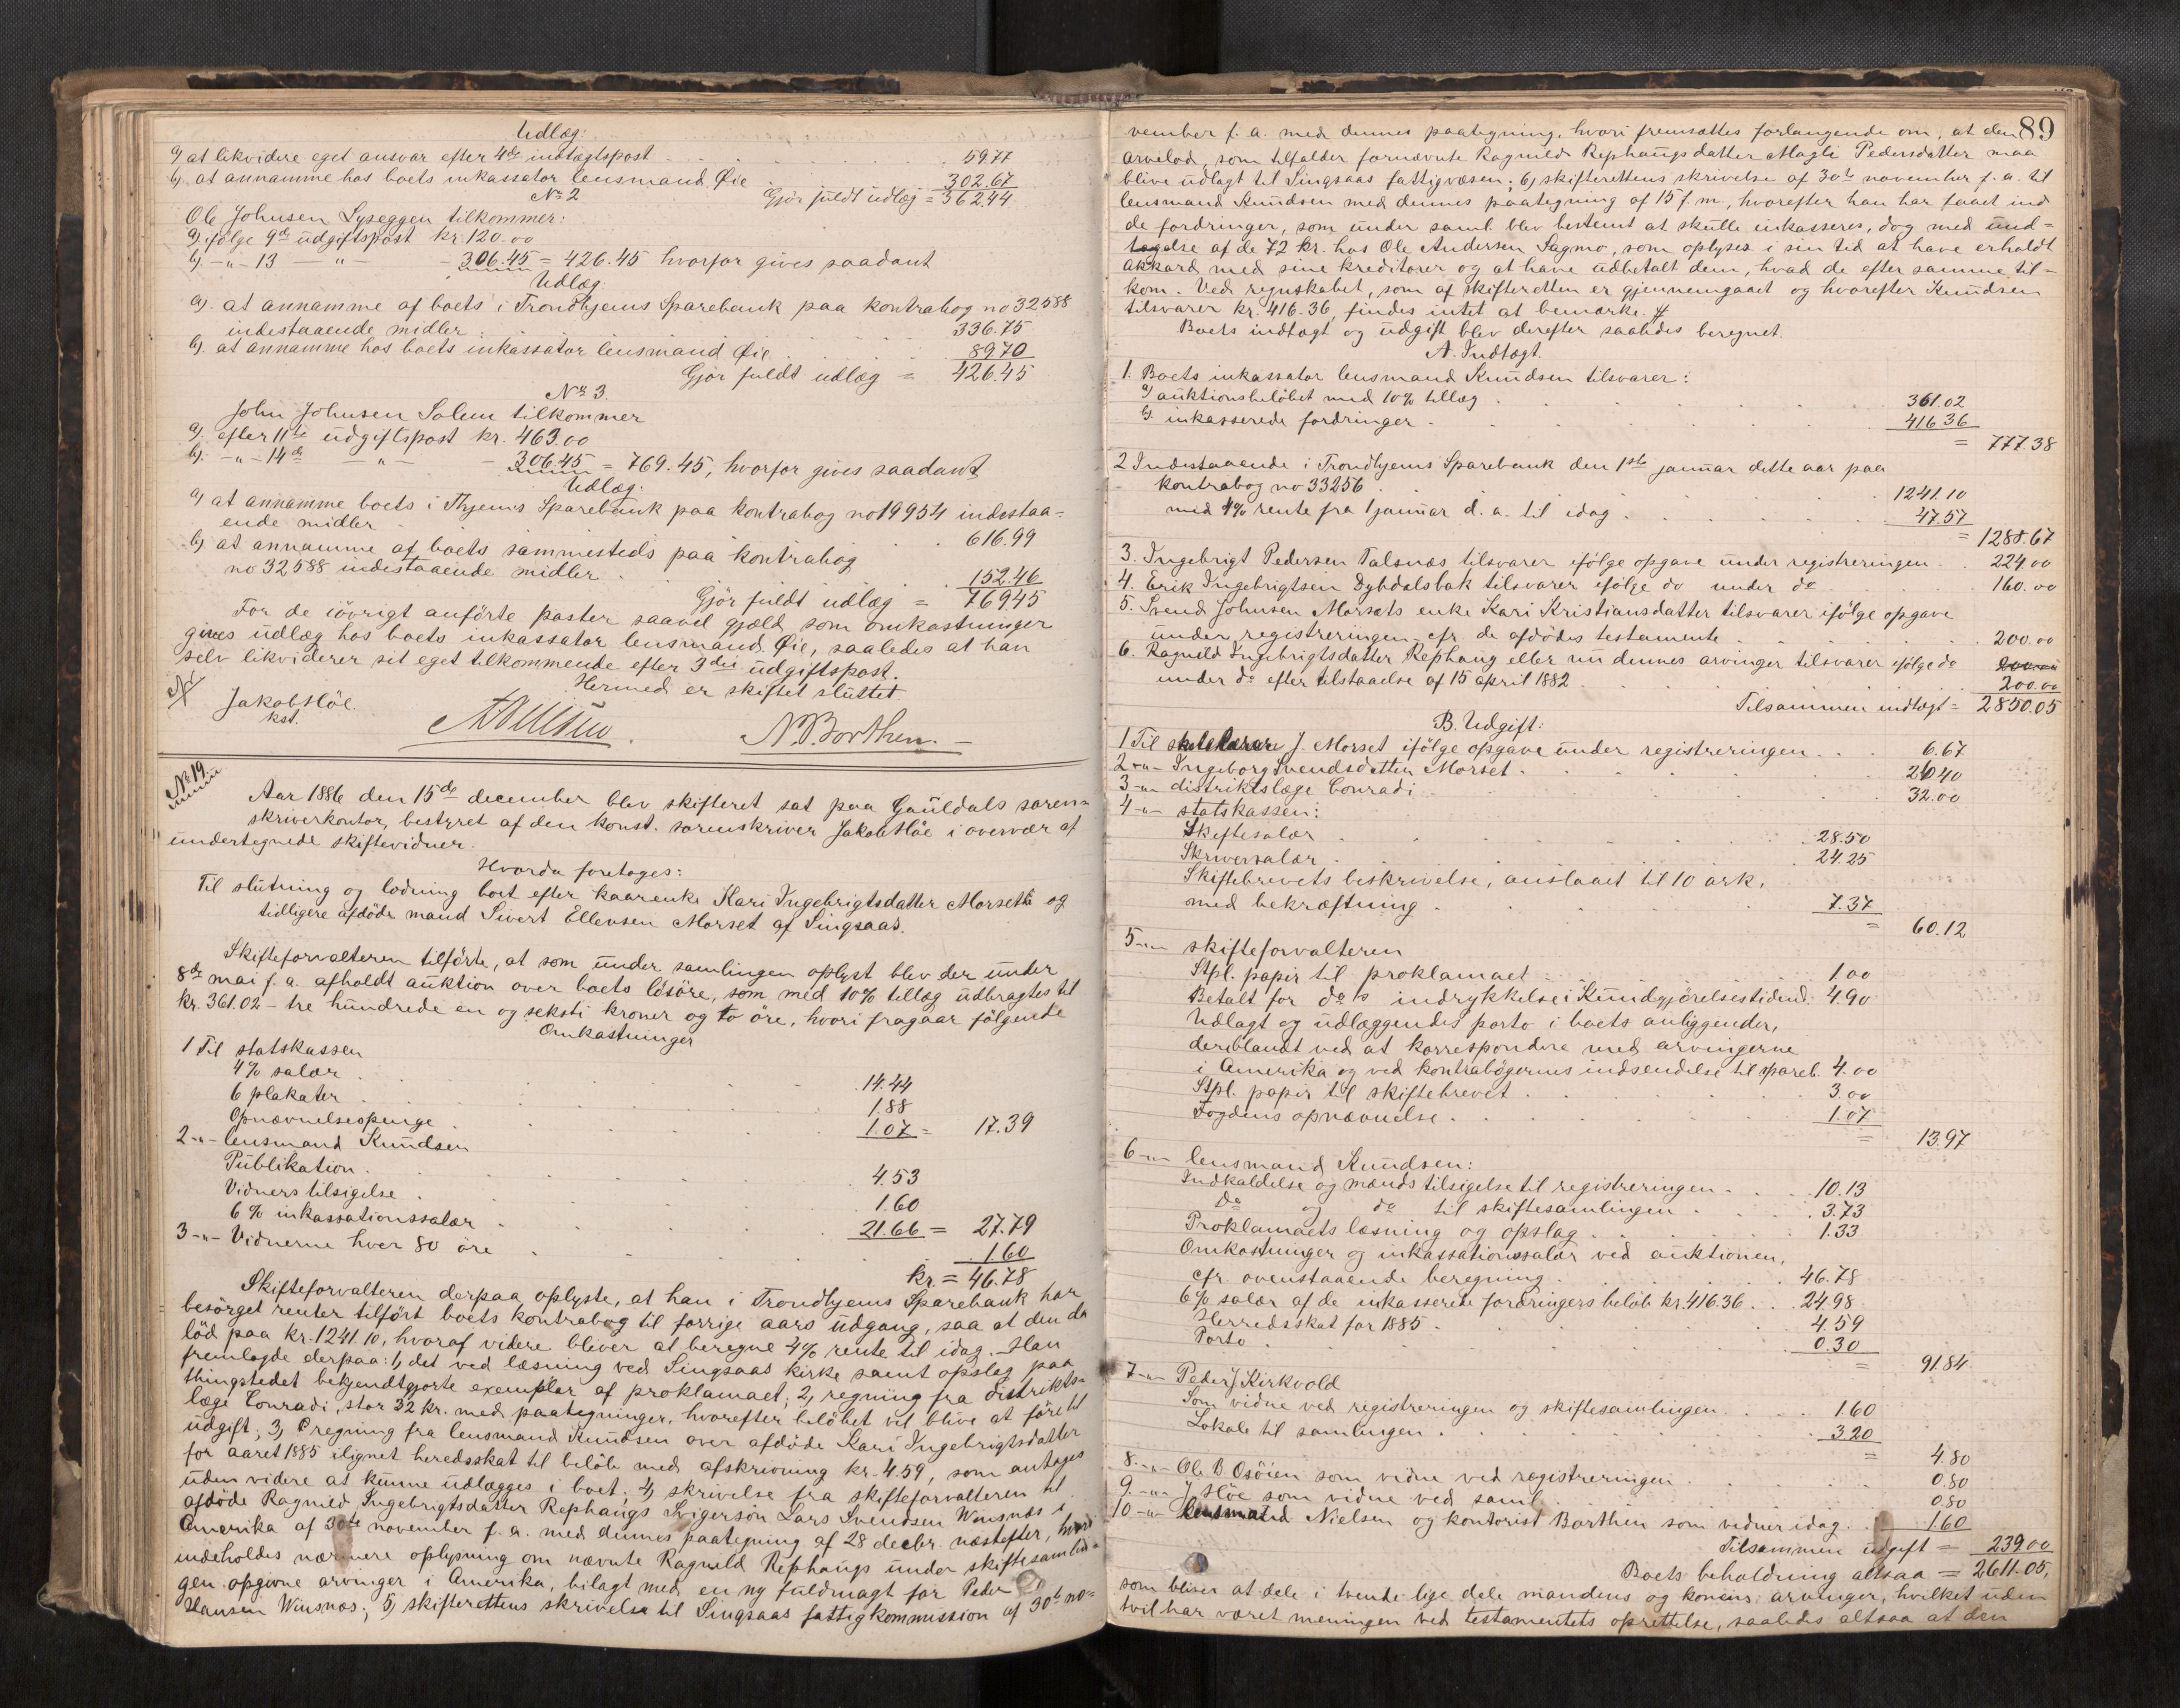 Udlæg:
a) at likvidere eget ansvar efter 4de indtægtspost 59.77
b) at annamme hos boets inkassator lensmand Øie 302.67
Gjør fuldt udlæg = 362.44
No 2
Ole Johnsen Lyseggen tilkommer:
a) ifølge 9de udgiftspost kr. 120.00
b) -"- 13 -"- - 306.45 = 426.45 hvorfor gives saadant
Udlæg:
a) at annamme af boets i Trondhjems Sparebank paa kontrabog no 32588
indestaaende midler 336.75
b) at annamme hos boets inkassator lensmand Øie 89.70
Gjør fuldt udlæg = 426.45
No 3.
John Johnsen Solem tilkommer
a) efter 11te udgiftspost kr. 463.00
b) -"- 14de -"- - 306.45 = 769.45, hvorfor gives saadant
Udlæg:
a) at annamme boets i Thjems Sparebank paa kontrabog no 19954 indestaa=
ende midler 616.99
b) at annamme af boets sammesteds paa kontrabog
no 32588 indestaaende midler 152.46
Gjør fuldt udlæg = 769.45
For de iøvrigt anførte poster saavel gjæld som omkostninger
gives udlæg hos boets inkassator lensmand Øie, saaledes at han
selv likviderer sit eget tilkommende efter 3die udgiftspost.
Hermed er skiftet sluttet
Jakob Høe
kst.
N. Borthen.
No 19.
Aar 1886 den 15de december blev skifteret sat paa Gauldals soren=
skriverkontor, bestyret af den konst. sorenskriver Jakob Høe i overvær af
undertegnede skiftevidner.
Hvorda foretoges:
Til slutning og lodning boet efter kaarenke Kari Ingebrigtsdatter Morseth og
tidligere afdøde mand Sivert Ellevsen Morset af Singsaas.
Skifteforvalteren tilførte, at som under samlingen oplyst blev der under
8de mai f. a. afholdt auktion over boets løsøre, som med 10% tillæg udbragtes til
kr. 361.02 - tre hundrede en og seksti kroner og to øre, hvori fragaar følgende
Omkostninger
1 Til statskassen
4% salær 14.44
6 plakater 1.88
Opnævnelsespenge 1.07 = 17.39
2 -"- lensmand Knudsen
Publikation 4.53
Vidners tilsigelse 1.60
6% inkassationssalær 21.66 = 27.79
3 -"- Vidnerne hver 80 øre 1.60
kr. = 46.78
Skifteforvalteren derpaa oplyste, at han i Trondhjems Sparebank har
besørget renter tilført boets kontrabog til forrige aars udgang, saa at den da
lød paa kr. 1241.10, hvoraf videre bliver at beregne 4% rente til idag. Han
fremlagde derpaa: 1, det ved læsning ved Singsaas kirke samt opslag paa
thingstedet bekjendtgjorte exemplar af proklamaet; 2, regning fra distrikts=
læge Conradi, stor 32 kr. med paategninger, hvorefter beløbet vil blive at føre til
udgift; 3, regning fra lensmand Knudsen over afdøde Kari Ingebrigtsdatter
for aaret 1885 ilignet heredsskat til beløb med afskrivning kr. 4.59, som antages
uden videre at kunne udlægges i boet. 4, skrivelse fra skifteforvalteren til
afdøde Ragnild Ingebrigtsdatter Rephaugs Svigersøn Lars Svendsen Winsnæs i
Amerika af 30te november f. a. med dennes paategning af 28 decbr. næstefter, hvori
indeholdes nærmere oplysning om nævnte Ragnild Rephaugs under skiftesamlin=
gen opgivne arvinger i Amerika, bilagt med en ny fuldmagt for Peder
Hansen Winsnæs; 5, skifterettens skrivelse til Singsaas fattigkommission af 30te no=
89
vember f. a. med dennes paategning, hvori fremsættes forlangende om, at den
arvelod, som tilfalder fornævnte Ragnild Rephaugs datter Magli Pedersdatter maa
blive udlagt til Singsaas fattigvæsen; 6, skifterettens skrivelse af 30te november f. a. til
lensmand Knudsen med dennes paategning af 15 f. m., hvorefter han har faaet ind
de fordringer, som under saml. blev bestemt at skulle inkasseres, dog med und=
tagelse af de 72 kr. hos Ole Andersen Sagmo, som oplyses i sin tid at have erholdt
akkord med sine kreditorer og at have udbetalt dem, hvad de efter samme til=
kom. Ved regnskabet, som af skifteretten er gjennemgaaet og hvorefter Knudsen
tilsvarer kr. 416.36, findes intet at bemærke.
Boets indtægt og udgift blev derefter saaledes beregnet.
A. Indtægt.
1. Boets inkassator lensmand Knudsen tilsvarer:
a) auktionsbeløbet med 10% tillæg 361.02
b) inkasserede fordringer 416.36
= 777.38
2 Indestaaende i Trondhjems Sparebank den 1ste januar dette aar paa
kontrabog no 33256 1241.10
med 4% rente fra 1 januar d. a. til idag 47.57
= 1288.67
3. Ingebrigt Pedersen Talsnæs tilsvarer ifølge opgave under registreringen 224.00
4. Erik Ingebrigtsen Dybdalsbak tilsvarer ifølge do under do 160.00
5. Svend Johnsen Morsets enke Kari Kristiansdatter tilsvarer ifølge opgave
under registreringen cfr de afdødes testamente 200.00
6. Ragnild Ingebrigtsdatter Rephaug eller nu dennes arvinger tilsvarer ifølge do
under do efter tilstaaelse af 15 april 1882 200.00
Tilsammen indtægt = 2850.05
B. Udgift:
1 Til skolelærer J. Morset ifølge opgave under registreringen 6.67
2 -"- Ingeborg Svendsdatter Morset 26.40
3 -"- distriktslæge Conradi 32.00
4 -"- statskassen:
Skiftesalær 28.50
Skriversalær 24.25
Skiftebrevets beskrivelse, anslaaet til 10 ark,
med bekræftning 7.37
= 60.12
5 -"- skifteforvalteren
Stpl. papir til proklamaet 1.00
Betalt for do s indrykkelse i Kundgjørelsestidend. 4.90
Udlagt og udlæggendes porto i boets anliggender,
deriblandt ved at korrespondere med arvingerne
i Amerika og ved kontrabøgernes indsendelse til spareb. 4.00
Stpl. papir til skiftebrevet 3.00
Fogdens opnævnelse 1.07
= 13.97
6 -"- lensmand Knudsen:
Indkaldelse og mænds tilsigelse til registreringen 10.13
do og do til skiftesamlingen 3.73
Proklamaets læsning og opslag 1.33
Omkostninger og inkassationssalær ved auktionen,
cfr ovenstaaende beregning 46.78
6% salær af de inkasserede fordringers beløb kr. 416.36 24.98
Herredsskat for 1885 4.59
Porto 0.30
= 91.84
7 -"- Peder J Kirkvold
Som vidne ved registreringen og skiftesamlingen 1.60
Lokale til samlingen 3.20
= 4.80
8 -"- Ole B Osøien som vidne ved registreringen 0.80
9 -"- J. Høe som vidne ved saml. 0.80
10 -"- lensmand Nielsen og kontorist Borthen som vidner idag 1.60
Tilsammen udgift = 239.00
Boets beholdning altsaa = 2611.05,
som bliver at dele i tvende lige dele mandens og konens arvinger, hvilket uden
tvil har været meningen ved testamentets oprettelse, saaledes altsaa at den